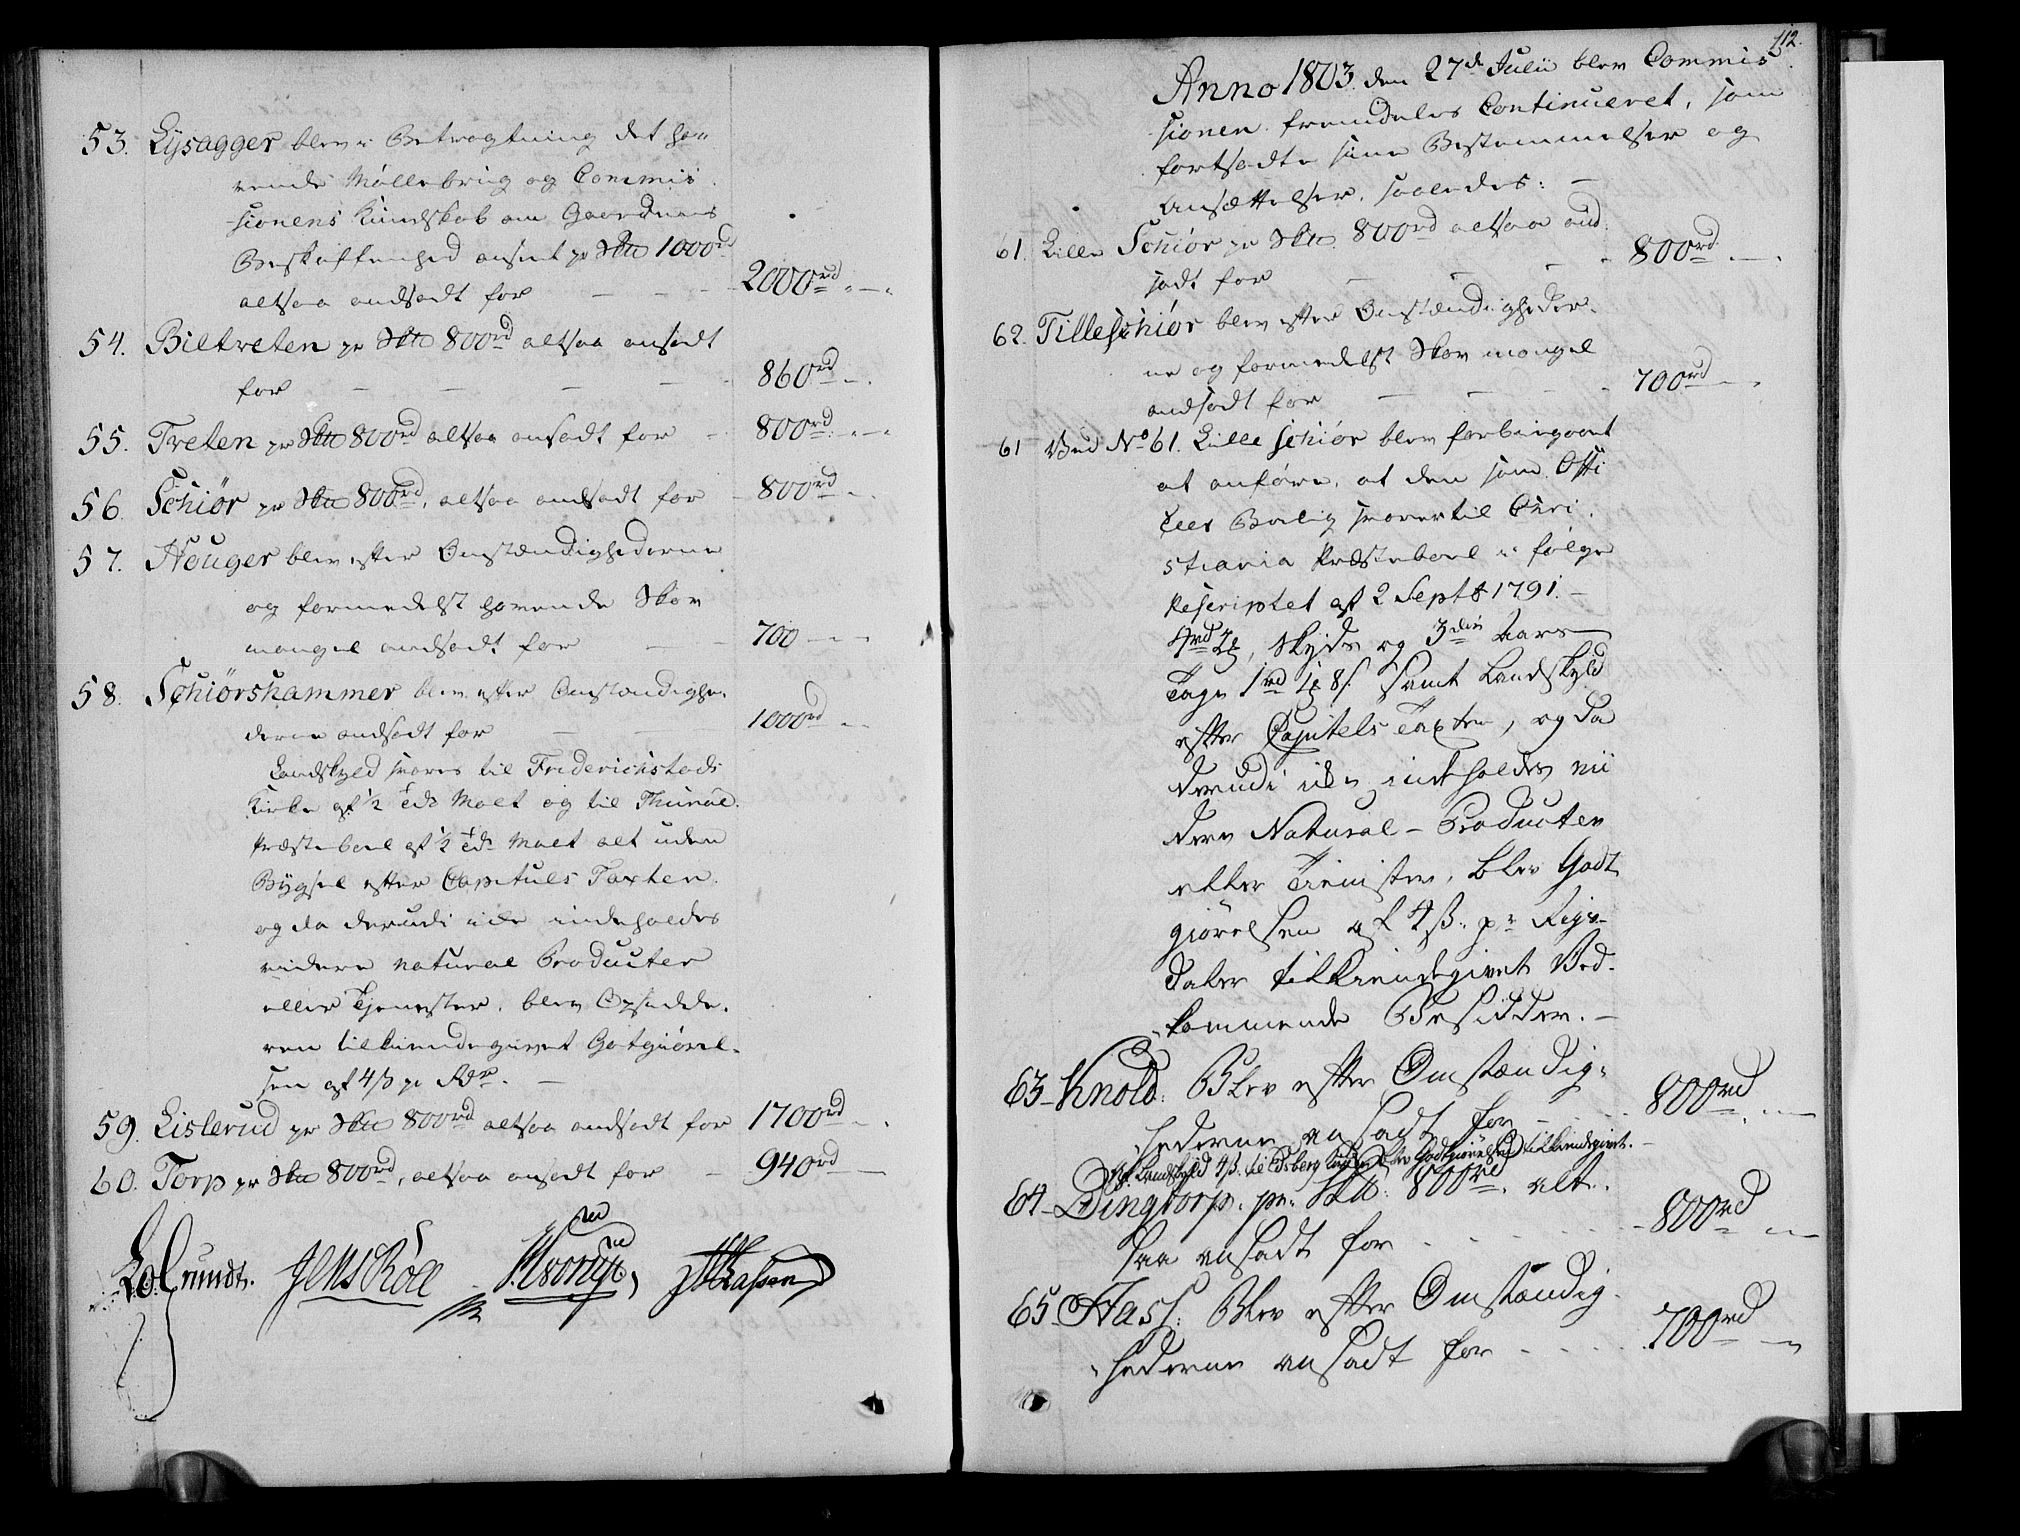 53. Lysagger blev i Betragtning det ha-
vende Møllebrug og Commis
sionens Kundskab om Gaardens
Beskaffenhed ansat pr Skd 1000rd
altsaa andsadt for — — — 2000rd „—„
54. Biltreten pr Skd 800rd altsaa ansadt
for — — — — 860rd —„
55. Treten pr Skd 800rd altsaa ansadt for - 800rd „—„
56. Schiør pr Skd 800rd, altsaa andsadt for - 800rd —„
57. Houger blev efter Omstændighederne
og formedelst havende Skov
mangel andsadt for — — 700 — —
58. Schiørshammer blev efter Omstændighe-
derne andsadt for — — 1000rd — —
Landskyld svares til Friderichstads
Kirke af ½ Td Malt og til Thunøe
Præsteboel af ½ Td Malt alt uden
Bygsel efter Capituls Taxten
og da derudi icke indeholdes
videre natural Producter
eller Tjenester, blev Opsidde-
ren tilkiendegivet Gotgiørel-
sen af 4 ß pr Rdr. —
59. Lislerud pr Skd 800rd altsaa andsadt for 1700rd —„
60. Torp pr Skd 800rd, altsaa ansadt for - 940rd —
Grundt. Jens Röll
112.
Anno 1803 den 27de Julii blev Commis
sionen fremdeles Continueret, som
fortsadte sine Bestemmelser og
Ansættelser, saaledes: —
61. Lille Schiør pr Skd. 800rd altsaa and
sadt for — — — 800rd „—„
62. Tilleschiør blev efter Omstændigheder-
ne og formedelst Skov mangel
andsadt for — — — 700rd —„
61 Ved No 61. Lille Schiør blev forbigaaet
at anføre, at den som Offi
ceer Bolig svarer til Chri-
stiania Præsteboel i følge
Rescriptet af 2 Septb 1791. —
4rd 2, Skyds og 3die Aars
Tage 1rd 1 8 s. Samt Landskyld
efter Capitels Taxten, og da
derudi icke indholdes vii
dere Natural-Producter
eller Tienester, blev Godt
giørelsen af 4 ß. pr Rigs-
daler tilkiendegivet Ved-
kommende Besidder. —
63 - Knold. Blev efter Omstændig-
hederne ansadt for — 800rd „—
Af Landskyld 4 ß. til Edsberg blev Godtgiørelsen tilkiendegivet. —
64 - Dingtorp. pr: Skd: 800rd. alt-
saa ansadt for - - - - 800rd „—
65 - Hass: Blev efter Omstændig-
hederne ansadt for - - - - 700rd „—